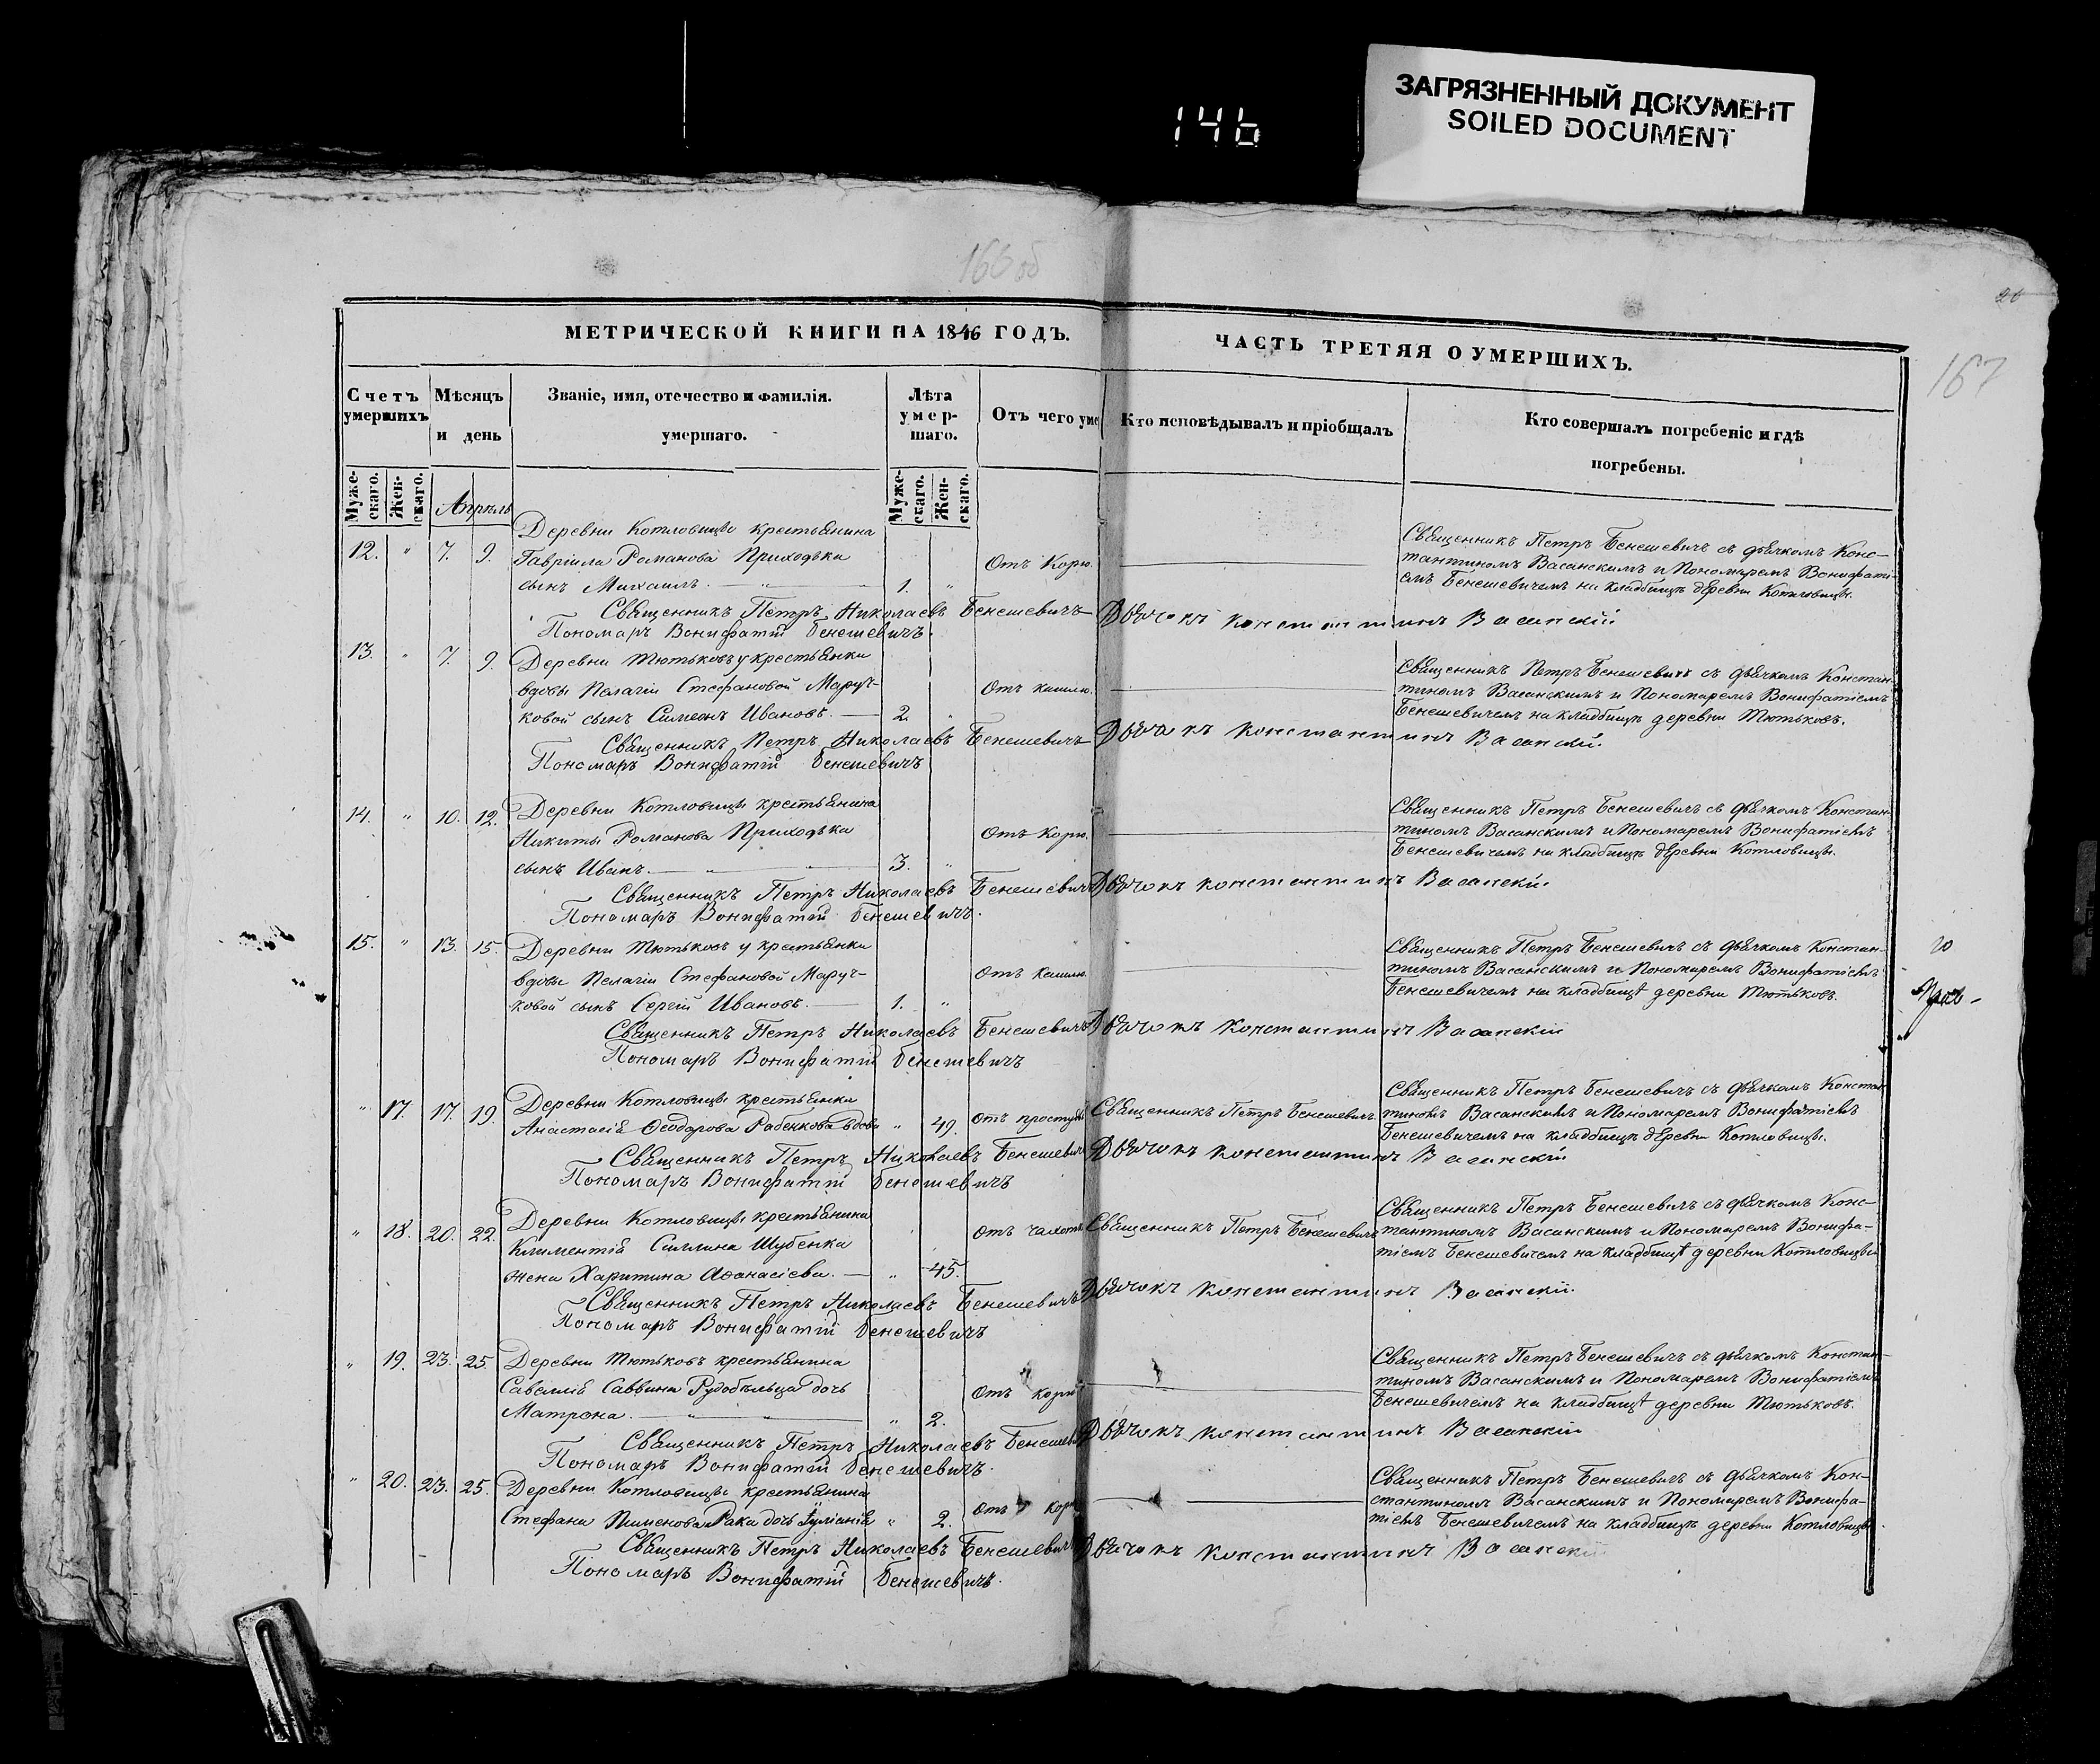 146
ЗАГРЯЗНЕННЫЙ ДОКУМЕНТ
SOILED DOCUMENT
166 об
167
МЕТРИЧЕСКОЙ КНИГИ НА 1846 ГОДЪ.
ЧАСТЬ ТРЕТЯЯ О УМЕРШИХЪ.
Счетъ умершихъ
Мѣсяцъ и день
Званіе, имя, отечество и фамилія. умершаго.
Лѣта умер-шаго.
Отъ чего уме
Кто исповѣдывалъ и пріобщалъ
Кто совершалъ погребеніе и гдѣ погребены.
Муже-скаго. Жен-скаго.
Апрѣль
Муже-скаго. Жен-скаго.
Деревни Котловицъ крестьянина
12. " 7. 9. Гавріила Романова Приходька Отъ Корю.
сынъ Михаилъ. 1. "
Священникъ Петръ Бенешевичъ съ дьячкомъ Конс-
тантиномъ Васанскимъ и Пономаремъ Вонифаті-
емъ Бенешевичемъ на кладбищѣ деревни Котловицъ.
Священникъ Петръ Николаевъ Бенешевичъ Дьячокъ Константинъ Васанскій
Пономаръ Вонифатій Бенешевичъ.
13. " 7. 9. Деревни Тютьковъ у крестьянки
вдовы Пелагіи Стефановой Маруч- Отъ кашлю.
ковой сынъ Симеонъ Ивановъ. 2.
Священникъ Петръ Бенешевичъ съ дьячкомъ Констан-
тиномъ Васанскимъ и Пономаремъ Вонифатіемъ
Бенешевичемъ на кладбищѣ деревни Тютьковъ.
Священникъ Петръ Николаевъ Бенешевичъ Дьячокъ Константинъ Васанскій.
Пономаръ Вонифатій Бенешевичъ
14. " 10. 12. Деревни Котловицъ крестьянина
Никиты Романова Приходька Отъ Корю.
сынъ Иванъ. 3. "
Священникъ Петръ Бенешевичъ съ дьячкомъ Констан-
тиномъ Васанскимъ и Пономаремъ Вонифатіемъ
Бенешевичемъ на кладбищѣ деревни Котловицъ.
Священникъ Петръ Николаевъ Бенешевичъ Дьячокъ Константинъ Васанскій.
Пономаръ Вонифатій Бенешевичъ.
15. " 13. 15. Деревни Тютьковъ у крестьянки
вдовы Пелагіи Стефановой Маруч- Отъ кашлю.
ковой сынъ Сергій Ивановъ. 1. "
Священникъ Петръ Бенешевичъ съ дьячкомъ Констан-
тиномъ Васанскимъ и Пономаремъ Вонифатіемъ
Бенешевичемъ на кладбищѣ деревни Тютьковъ.
Священникъ Петръ Николаевъ Бенешевичъ Дьячокъ Константинъ Васанскій
Пономаръ Вонифатій Бенешевичъ
" 17. 17. 19. Деревни Котловицъ крестьянки
Анастасія Ѳеодорова Рабенкова вдова " 49. Отъ простуды Священникъ Петръ Бенешевичъ
Священникъ Петръ Бенешевичъ съ дьячкомъ Констан
тиномъ Васанскимъ и Пономаремъ Вонифатіемъ
Бенешевичемъ на кладбищѣ деревни Котловицъ.
Священникъ Петръ Николаевъ Бенешевичъ Дьячокъ Константинъ Васанскій
Пономаръ Вонифатій Бенешевичъ
" 18. 20. 22. Деревни Котловицъ крестьянина
Климентія Силлина Шубенка Отъ чахоты Священникъ Петръ Бенешевичъ
жена Харитина Аѳанасіева. " 45.
Священникъ Петръ Бенешевичъ съ дьячкомъ Конс-
тантиномъ Васанскимъ и Пономаремъ Вонифа-
тіемъ Бенешевичемъ на кладбищѣ деревни Котловицъ
Священникъ Петръ Николаевъ Бенешевичъ Дьячокъ Константинъ Васанскій.
Пономаръ Вонифатій Бенешевичъ
" 19. 23. 25. Деревни Тютьковъ крестьянина
Савеллія Саввина Рудобѣльца дочь Отъ корю
Матрона. " 2.
Священникъ Петръ Бенешевичъ съ дьячкомъ Констан-
тиномъ Васанскимъ и Пономаремъ Вонифатіемъ
Бенешевичемъ на кладбищѣ деревни Тютьковъ.
Священникъ Петръ Николаевъ Бенешевичъ Дьячокъ Константинъ Васанскій
Пономаръ Вонифатій Бенешевичъ.
" 20. 23. 25. Деревни Котловицъ крестьянина
Стефана Пименова Рака дочь Іуліанія " 2. Отъ корю
Священникъ Петръ Бенешевичъ съ дьячкомъ Кон-
стантиномъ Васанскимъ и Пономаремъ Вонифа-
тіемъ Бенешевичемъ на кладбищѣ деревни Котловицъ.
Священникъ Петръ Николаевъ Бенешевичъ Дьячокъ Константинъ Васанскій
Пономаръ Вонифатій Бенешевичъ.